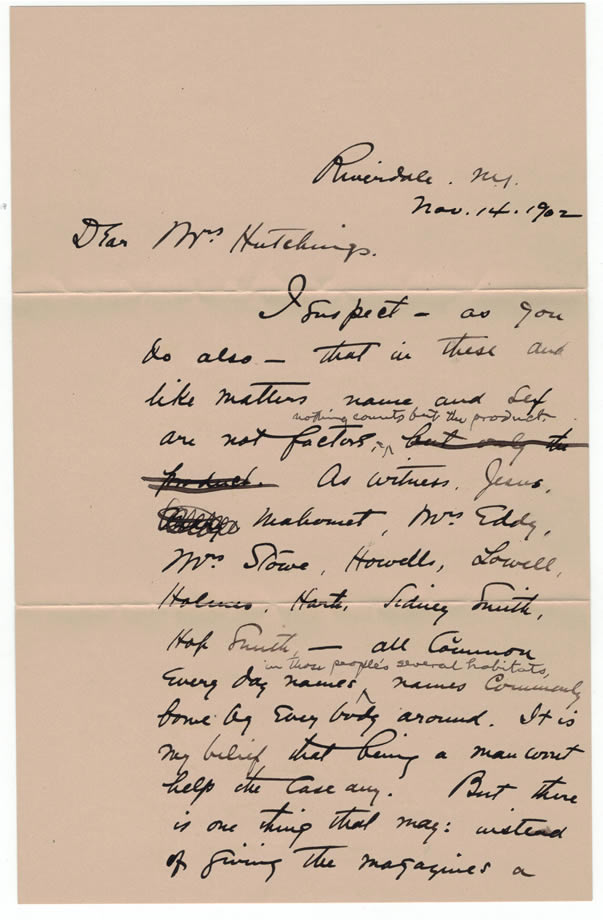 Riverdale. NY.
Nov. 14. 1902
Dear Mrs Hutchings.
I suspect — as you
do also — that in these and
like matters name and sex
nothing counts but the product.
are not factors, but only the
product. As witness, Jesus,
Mahomet, Mrs Eddy,
Mrs Stowe, Howells, Lowell,
Holmes, Harte, Sidney Smith,
Hop Smith, — all common
in those people's several habitats,
every day names, names commonly
borne by every body around. It is
my belief that being a man wont
help the case any. But there
is one thing that may: instead
of giving the magazines a